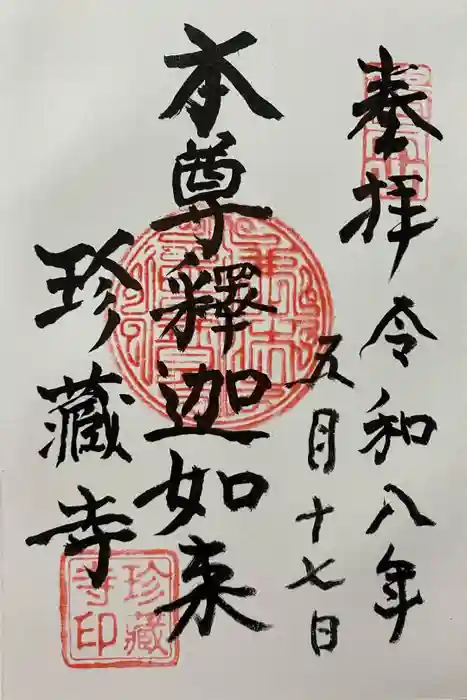 奉拝
令和八年
五月十七日
本尊釋迦如来
珍藏寺
珍藏寺印